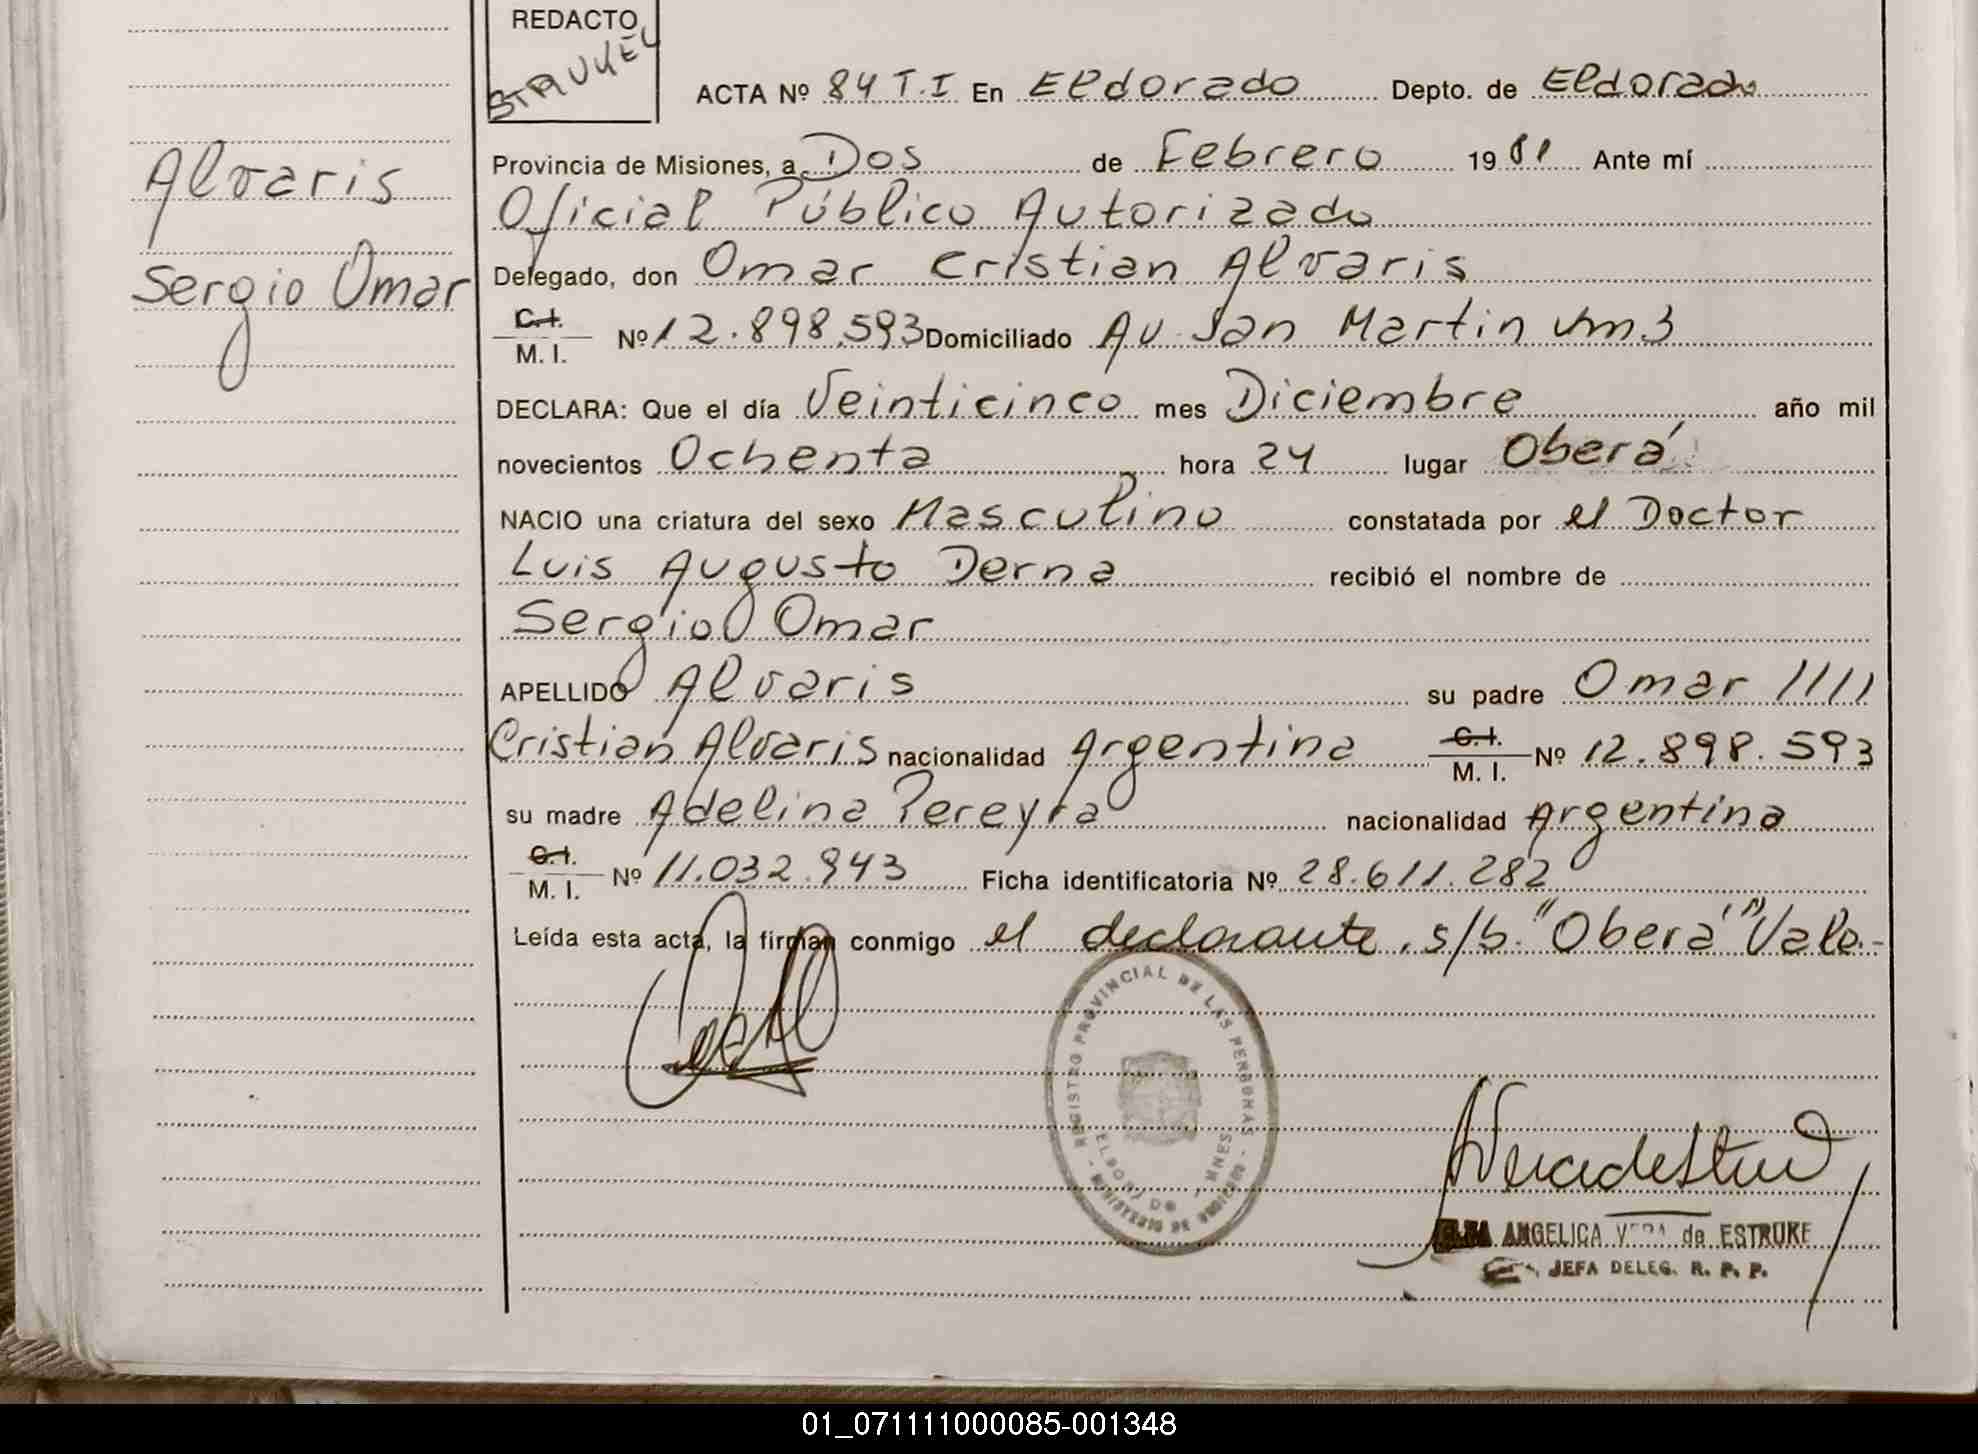 REDACTO
STRUKEL
ACTA Nº 84 T.I En Eldorado Depto. de Eldorado
Provincia de Misiones, a Dos de Febrero 1981 Ante mí
Oficial Público Autorizado
Delegado, don Omar Cristian Alvaris
C.I.
M. I. Nº 12.898.593 Domiciliado Av. San Martin Km3
DECLARA: Que el día Veinticinco mes Diciembre año mil
novecientos Ochenta hora 24 lugar Oberá
NACIO una criatura del sexo Masculino constatada por el Doctor
Luis Augusto Derna recibió el nombre de
Sergio Omar
APELLIDO Alvaris su padre Omar
Cristian Alvaris nacionalidad Argentina C.I. M. I. Nº 12.898.593
su madre Adelina Pereyra nacionalidad Argentina
C.I.
M. I. Nº 11.032.943 Ficha identificatoria Nº 28.611.282
Leída esta acta, la firman conmigo el declarante. s/b. "Oberá" Vale.-
Alvaris
Sergio Omar
REGISTRO PROVINCIAL DE LAS PERSONAS
ELDORADO MNES
MINISTERIO DE GOBIERNO
ANGELICA VERA de ESTRUKE
JEFA DELEG. R. P. P.
01_071111000085-001348